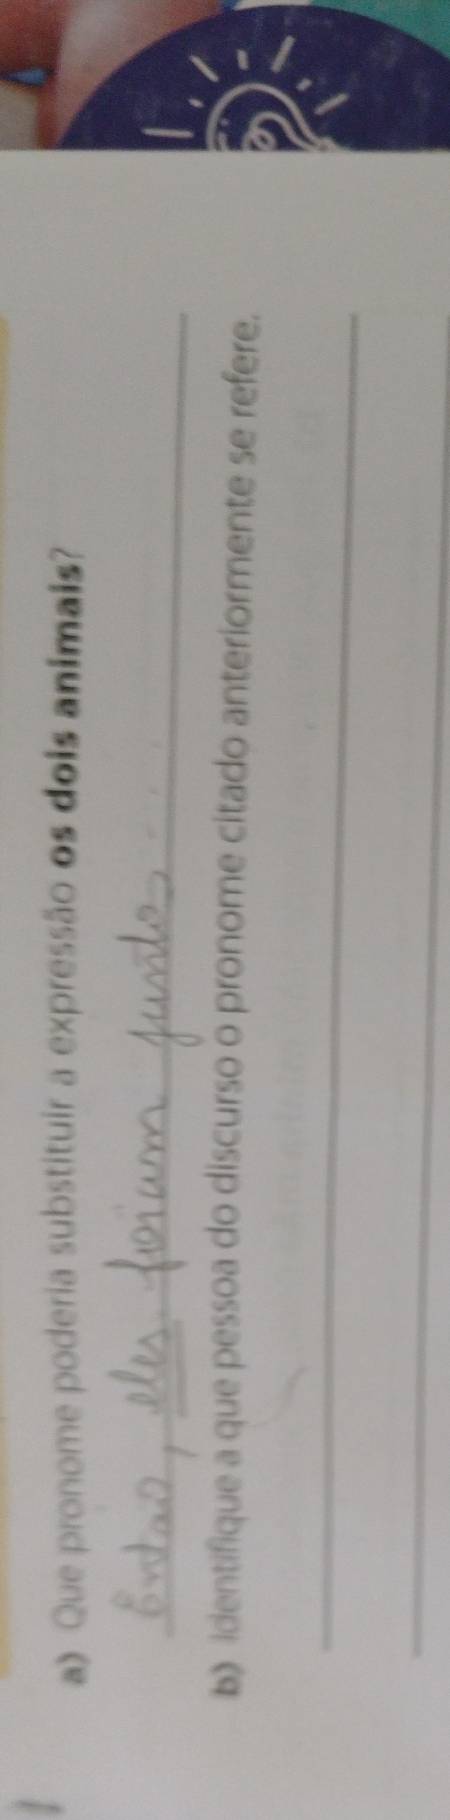 a) Que pronome poderia substituir a expressão os dois animais?
Então, eles fioram juntos...
b) Identifique a que pessoa do discurso o pronome citado anteriormente se refere.